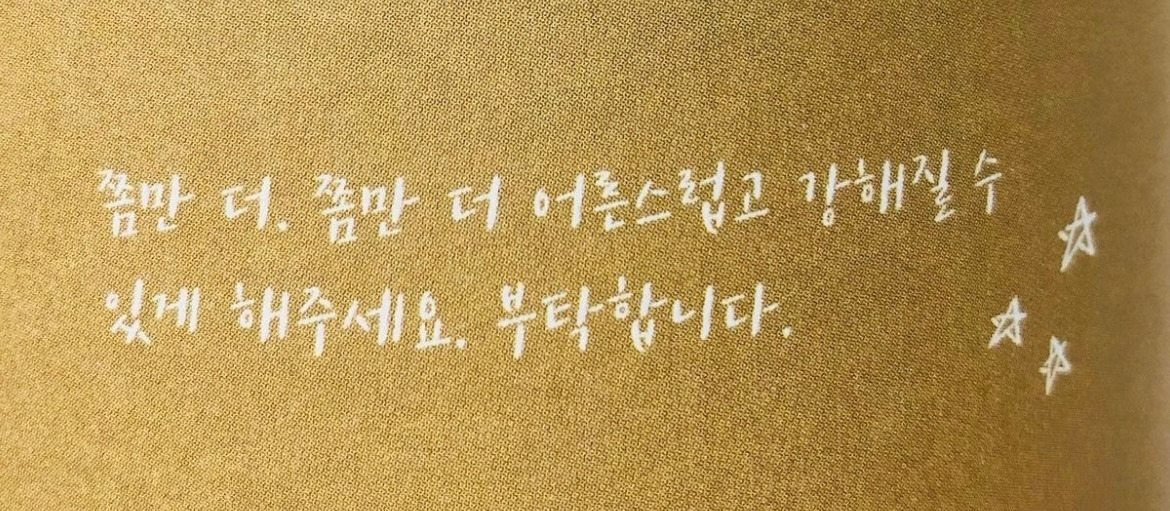 쫌만 더. 쫌만 더 어른스럽고 강해질 수
있게 해주세요. 부탁합니다.